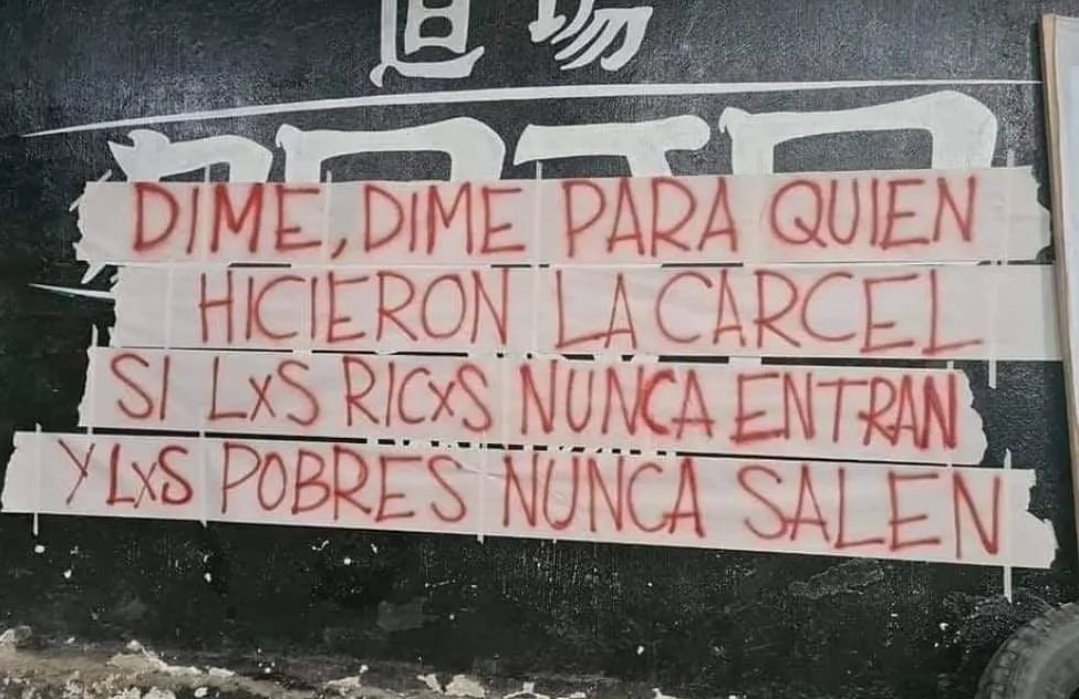 道場
DIME, DIME PARA QUIEN
HICIERON LA CARCEL
SI LXS RICXS NUNCA ENTRAN
Y LXS POBRES NUNCA SALEN